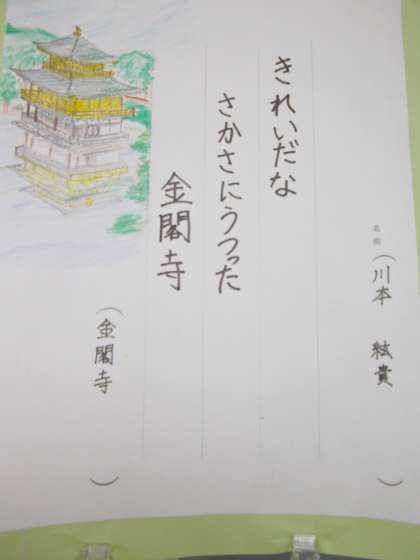 名前(川本 絃貴)
きれいだな
さかさにうつった
金閣寺
(金閣寺)